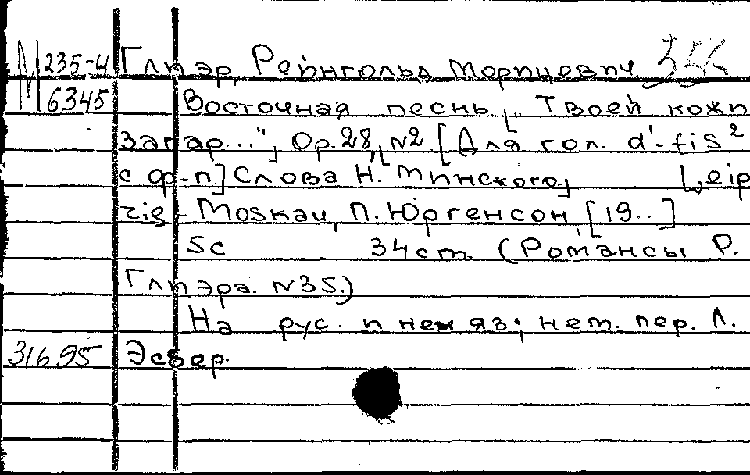 М 235-4 Глиэр, Рейнгольд Морицевич
6345 Восточная песнь „Твоей кожи
загар...", Op. 28, №2. [Для гол. d'-fis²
с ф-п] Слова Н. Минского, Leip
zig - Moskau, П. Юргенсон, [19..]
5с 34ст. (Романсы Р.
Глиэра. №35.)
На рус. и нем яз; нем. пер. Л.
31695 Эсбер.